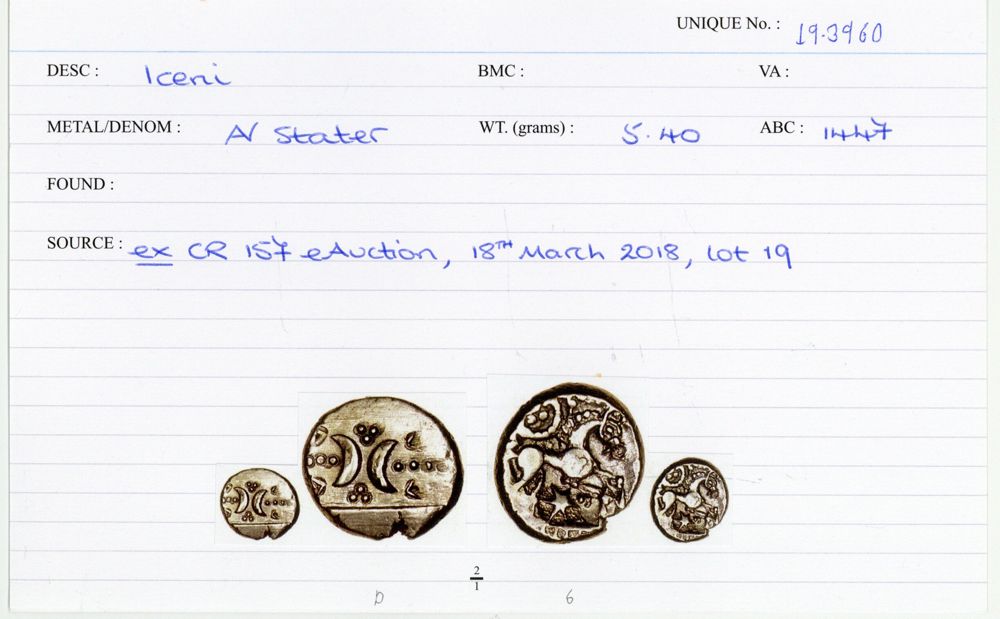 UNIQUE No. : 19-3960
DESC : Iceni BMC : VA :
METAL/DENOM : AV Stater WT. (grams) : 5.40 ABC : 1447
FOUND :
SOURCE : ex CR 157 eAuction, 18TH March 2018, lot 19
2
1
D 6